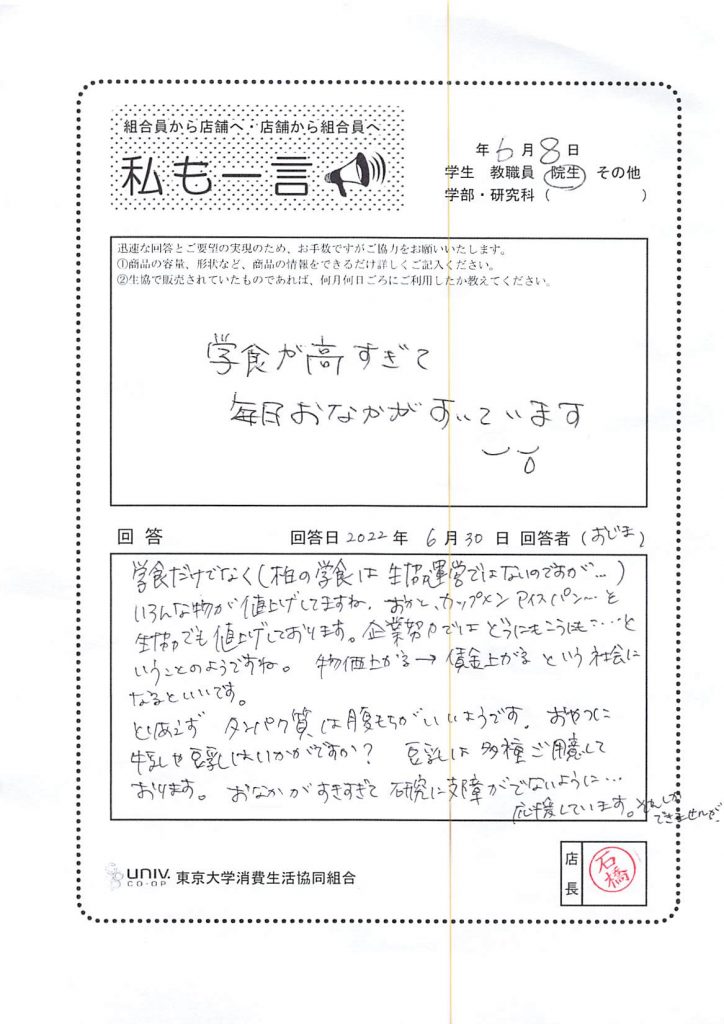 組合員から店舗へ・店舗から組合員へ
私も一言
年6月8日
学生 教職員 院生 その他
学部・研究科( )
迅速な回答とご要望の実現のため、お手数ですがご協力をお願いいたします。
①商品の容量、形状など、商品の情報をできるだけ詳しくご記入ください。
②生協で販売されていたものであれば、何月何日ごろにご利用したか教えてください。
学食が高すぎて
毎日おなかがすいています
回答 回答日2022年 6月30日 回答者(おじま)
学食だけでなく(柏の学食は生協運営ではないのですが…)
いろんな物が値上げしてますね。おかし、カップメン アイス パン〜と
生協でも値上げしております。企業努力ではどうにもこうにも…と
いうことのようですね。 物価上がる→賃金上がる という社会に
なるといいです。
とりあえず タンパク質は腹もちがいいようです。おやつに
牛乳や豆乳はいかがですか? 豆乳は多種ご用意して
おります。 おなかがすきすぎて 研究に支障がでないように…
応援しています。それしか
できませんが。
UNIV.
CO-OP
東京大学消費生活協同組合
店長
石橋